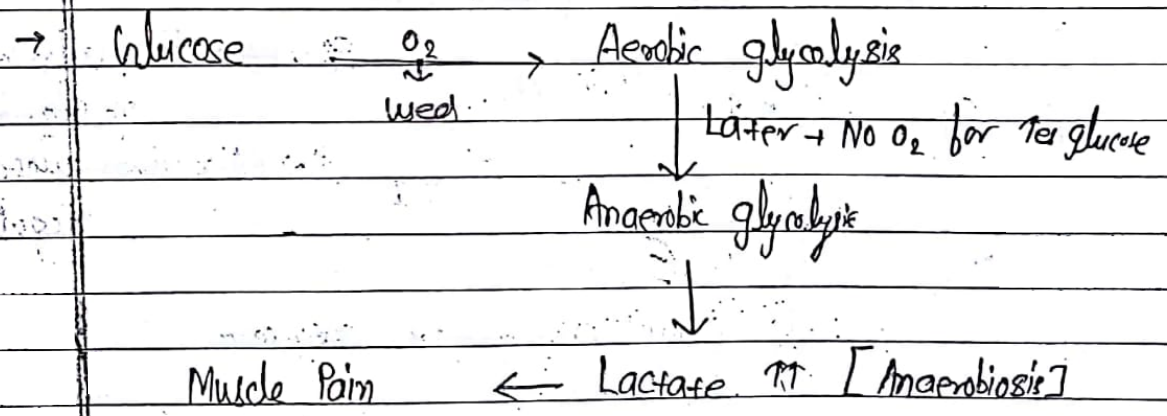 → Glucose O₂ → Aerobic glycolysis
↓ used
↓ Later → No O₂ for ↑ed glucose
Anaerobic glycolysis
↓
Muscle Pain ← Lactate ↑↑ [Anaerobiosis]